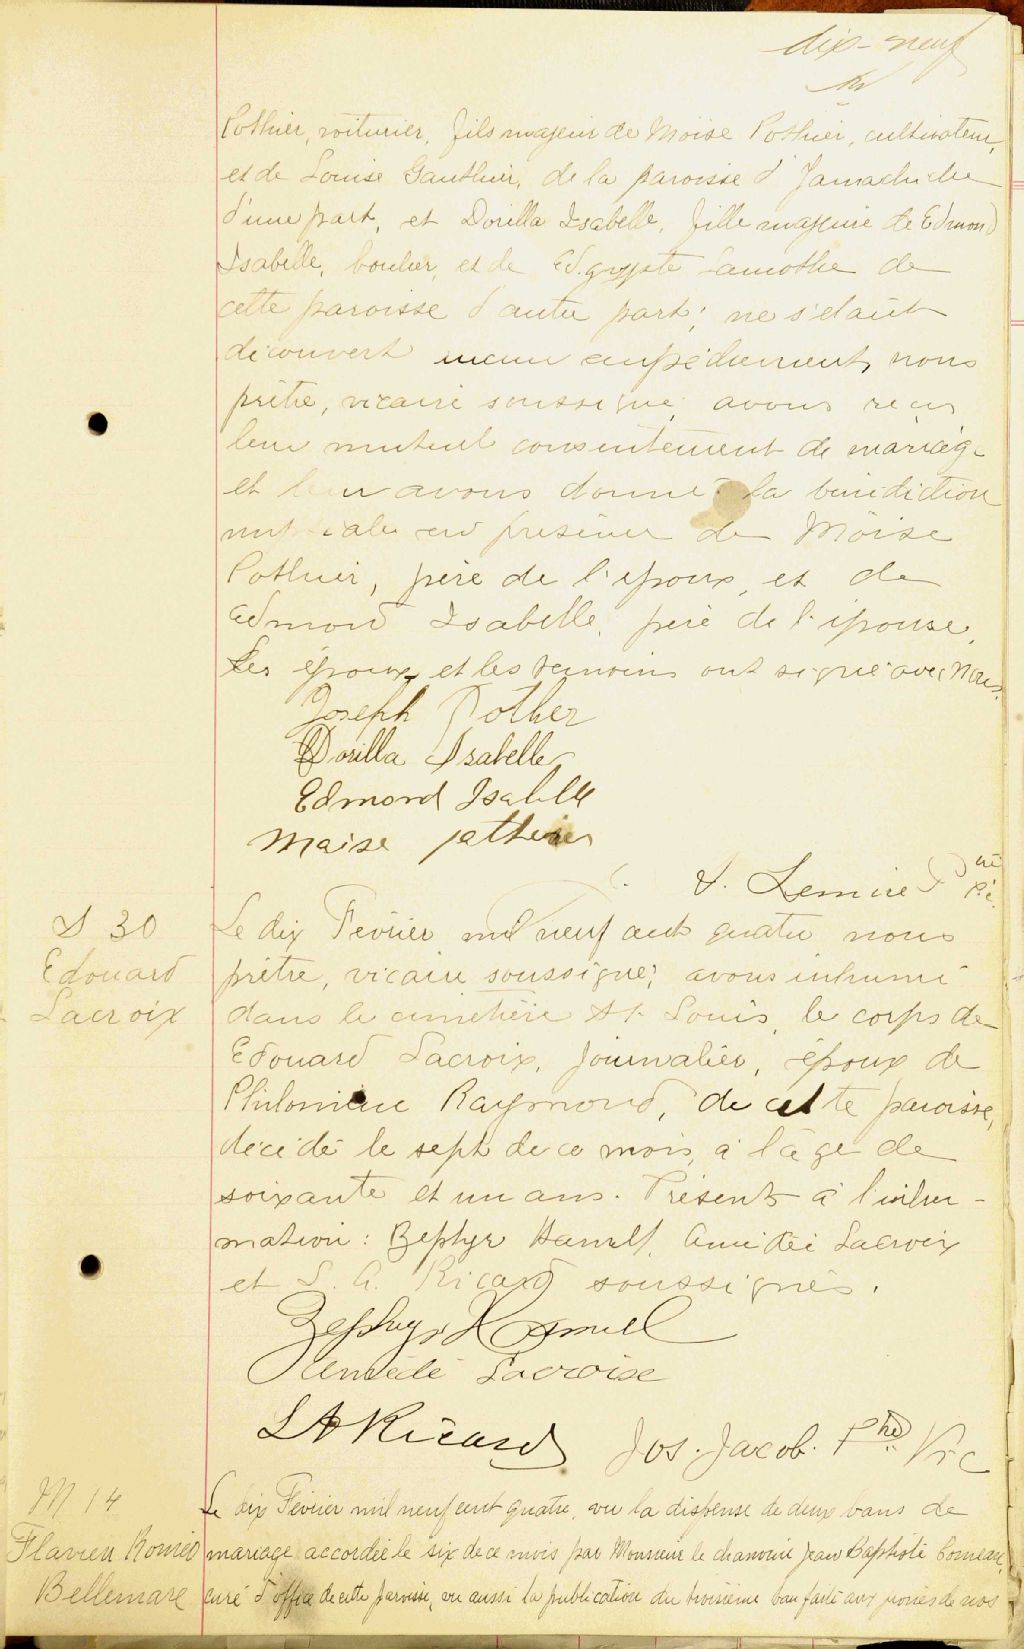 dix-neuf
Pothier, voiturier, fils majeur de Moïse Pothier, cultivateur,
et de Louise Gauthier, de la paroisse d'Yamachiche
d'une part, et Dorilla Isabelle, fille majeure de Edmond
Isabelle, boucher, et de Edgypte Lamothe de
cette paroisse d'autre part; ne s'étant
découvert aucun empêchement, nous
prêtre, vicaire soussigné, avons reçu
leur mutuel consentement de mariage
et leur avons donné la bénédiction
nuptiale en présence de Moïse
Pothier, père de l'époux, et de
Edmond Isabelle, père de l'épouse.
Les époux et les témoins ont signé avec nous.
Joseph Pother
Dorilla Isabelle
Edmond Isabelle
Maise pothier
Lemire Ptre
S 30
Edouard
Lacroix
Le dix Février mil neuf cent quatre nous
prêtre, vicaire soussigné, avons inhumé
dans le cimetière St. Louis, le corps de
Edouard Lacroix, journalier, époux de
Philomène Raymond, de cette paroisse,
décédé le sept de ce mois, à l'âge de
soixante et un ans. Présents à l'inhu-
mation: Zephyr Hamel, Amédée Lacroix
et L. A. Ricard soussignés.
Zephyr Hamel
Amédé Lacroix
L A Ricard
Jos. Jacob. Ptre Vic
M 14
Flavien Roméo
Bellemare
Le dix Février mil neuf cent quatre, vu la dispense de deux bans de
mariage accordée le six de ce mois par Monsieur le chanoine Jean Baptiste Comeau,
curé d'office de cette paroisse, vu aussi la publication du troisième ban faite aux prônes de nos